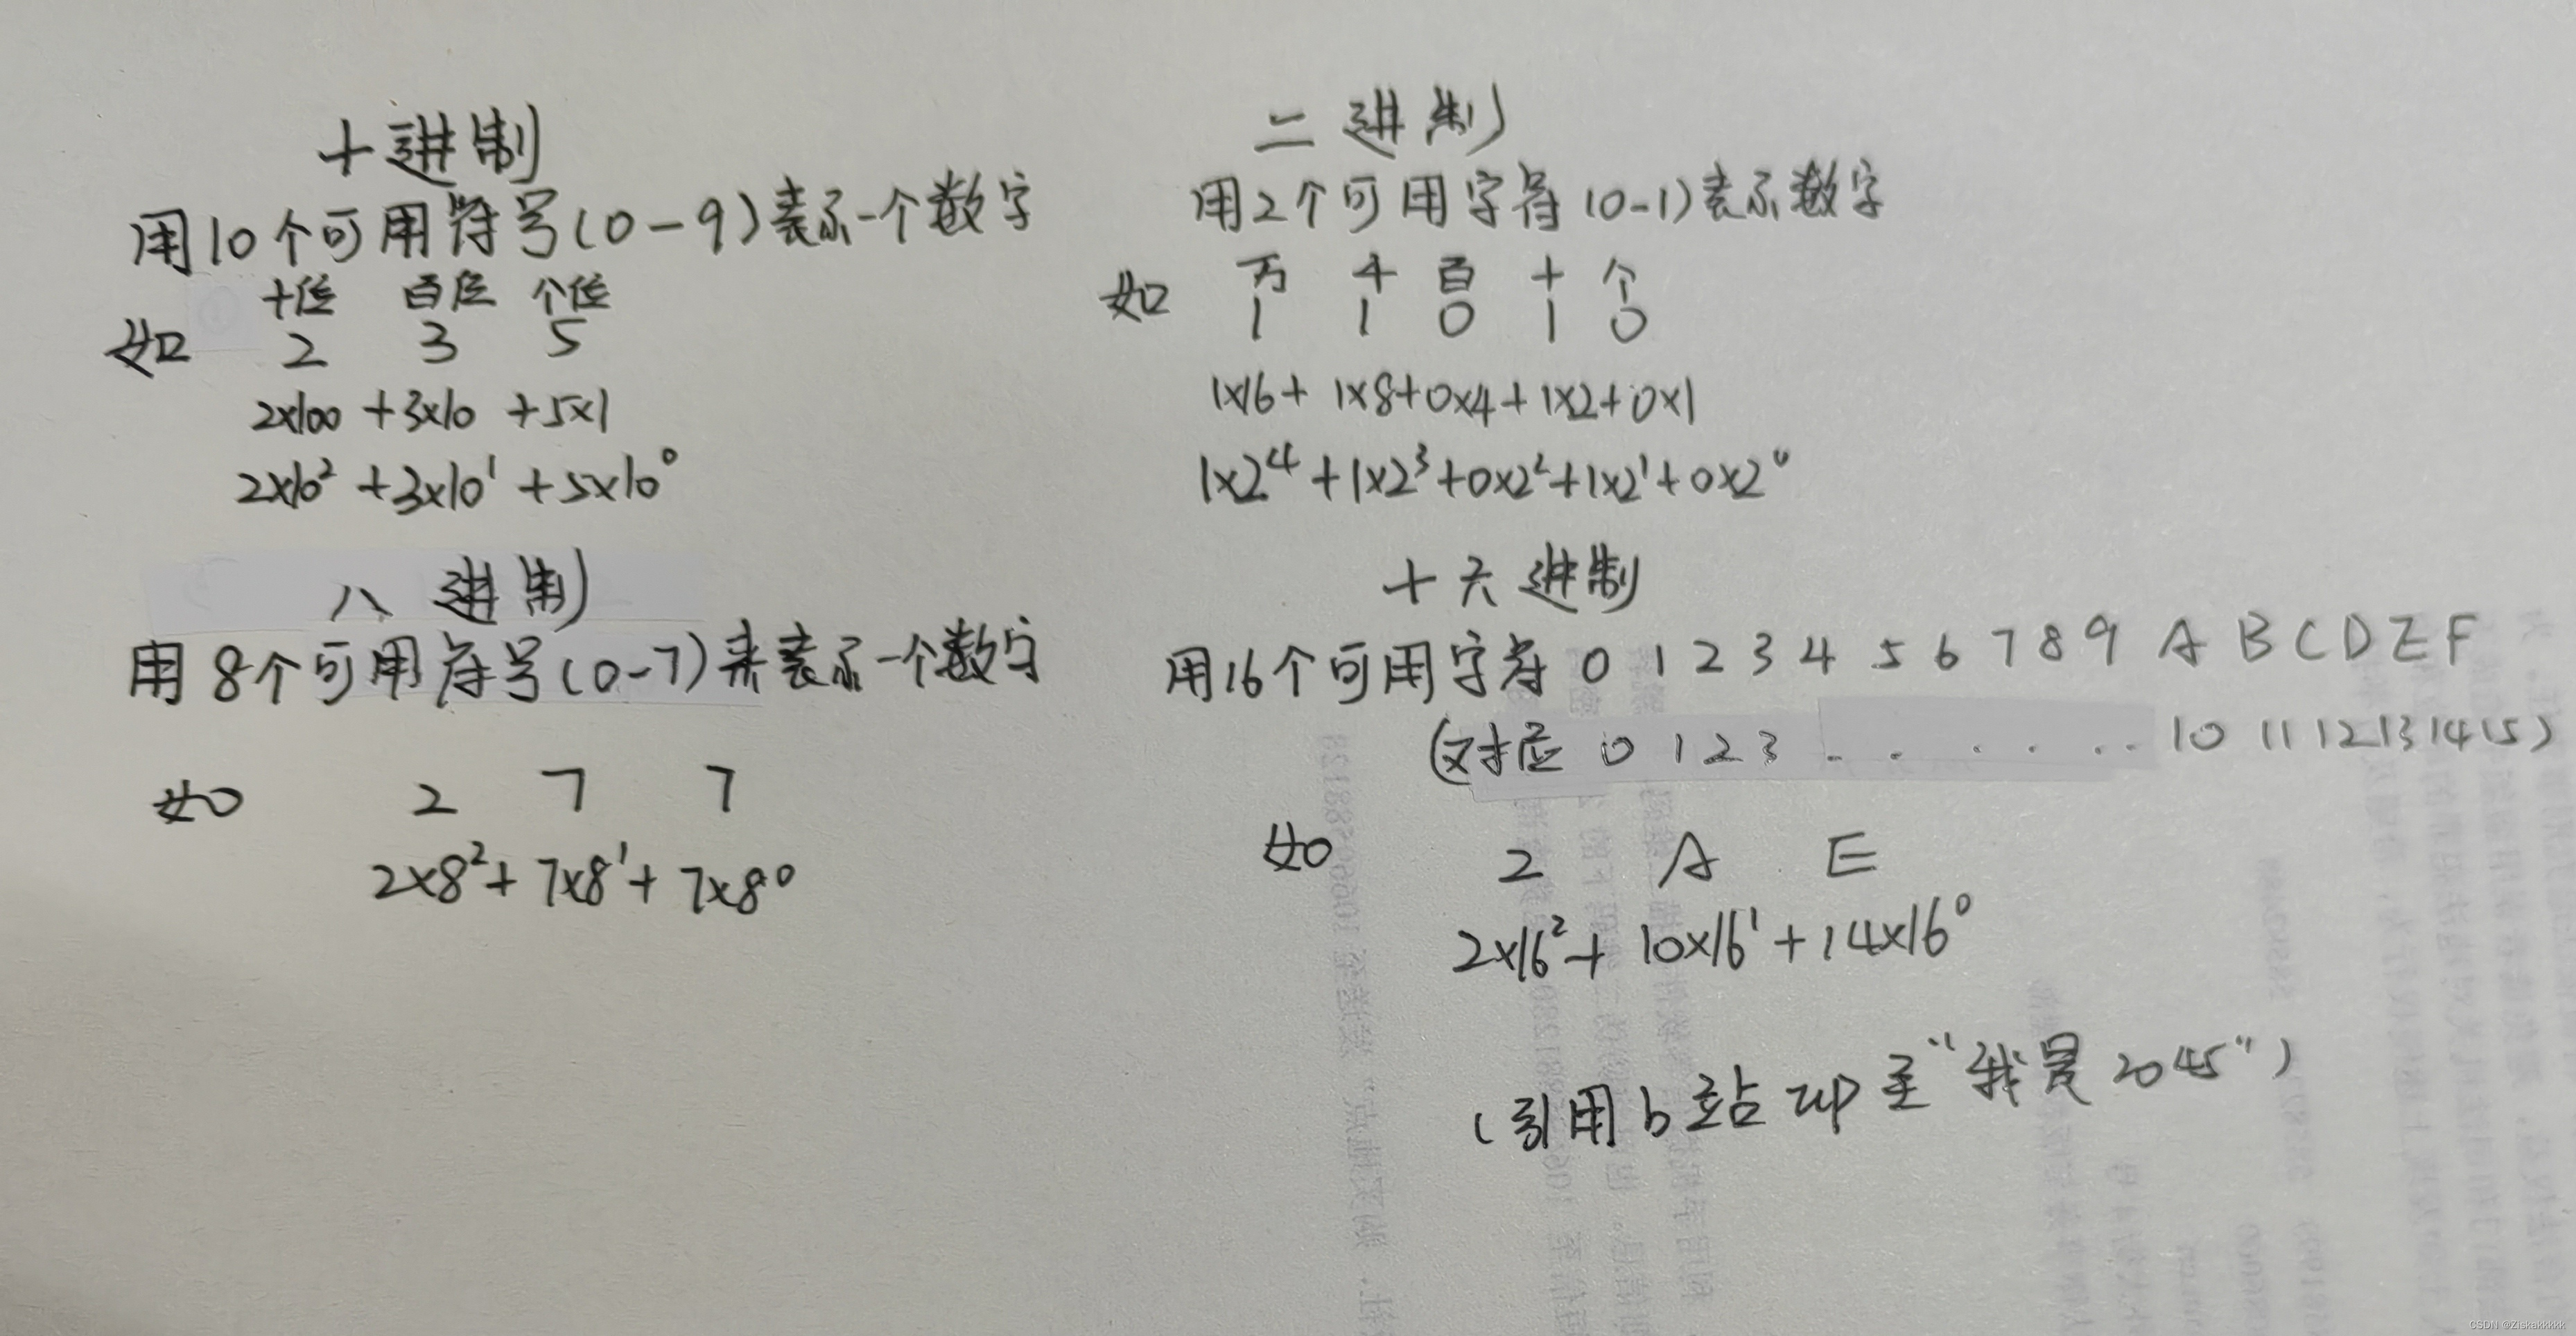 十进制
用10个可用符号(0-9)表示一个数字
十位 百位 个位
如 2 3 5
2×100+3×10+5×1
2×10²+3×10¹+5×10⁰
二进制
用2个可用字符(0-1)表示数字
万 千 百 十 个
如 1 1 0 1 0
1×16+1×8+0×4+1×2+0×1
1×2⁴+1×2³+0×2²+1×2¹+0×2⁰
八进制
用8个可用符号(0-7)来表示一个数字
如 2 7 7
2×8²+7×8¹+7×8⁰
十六进制
用16个可用字符 0 1 2 3 4 5 6 7 8 9 A B C D E F
(对应 0 1 2 3 . . . . . . 10 11 12 13 14 15)
如 2 A E
2×16²+10×16¹+14×16⁰
(引用b站up主"我是2045")
CSDN @Ziskakkkkk